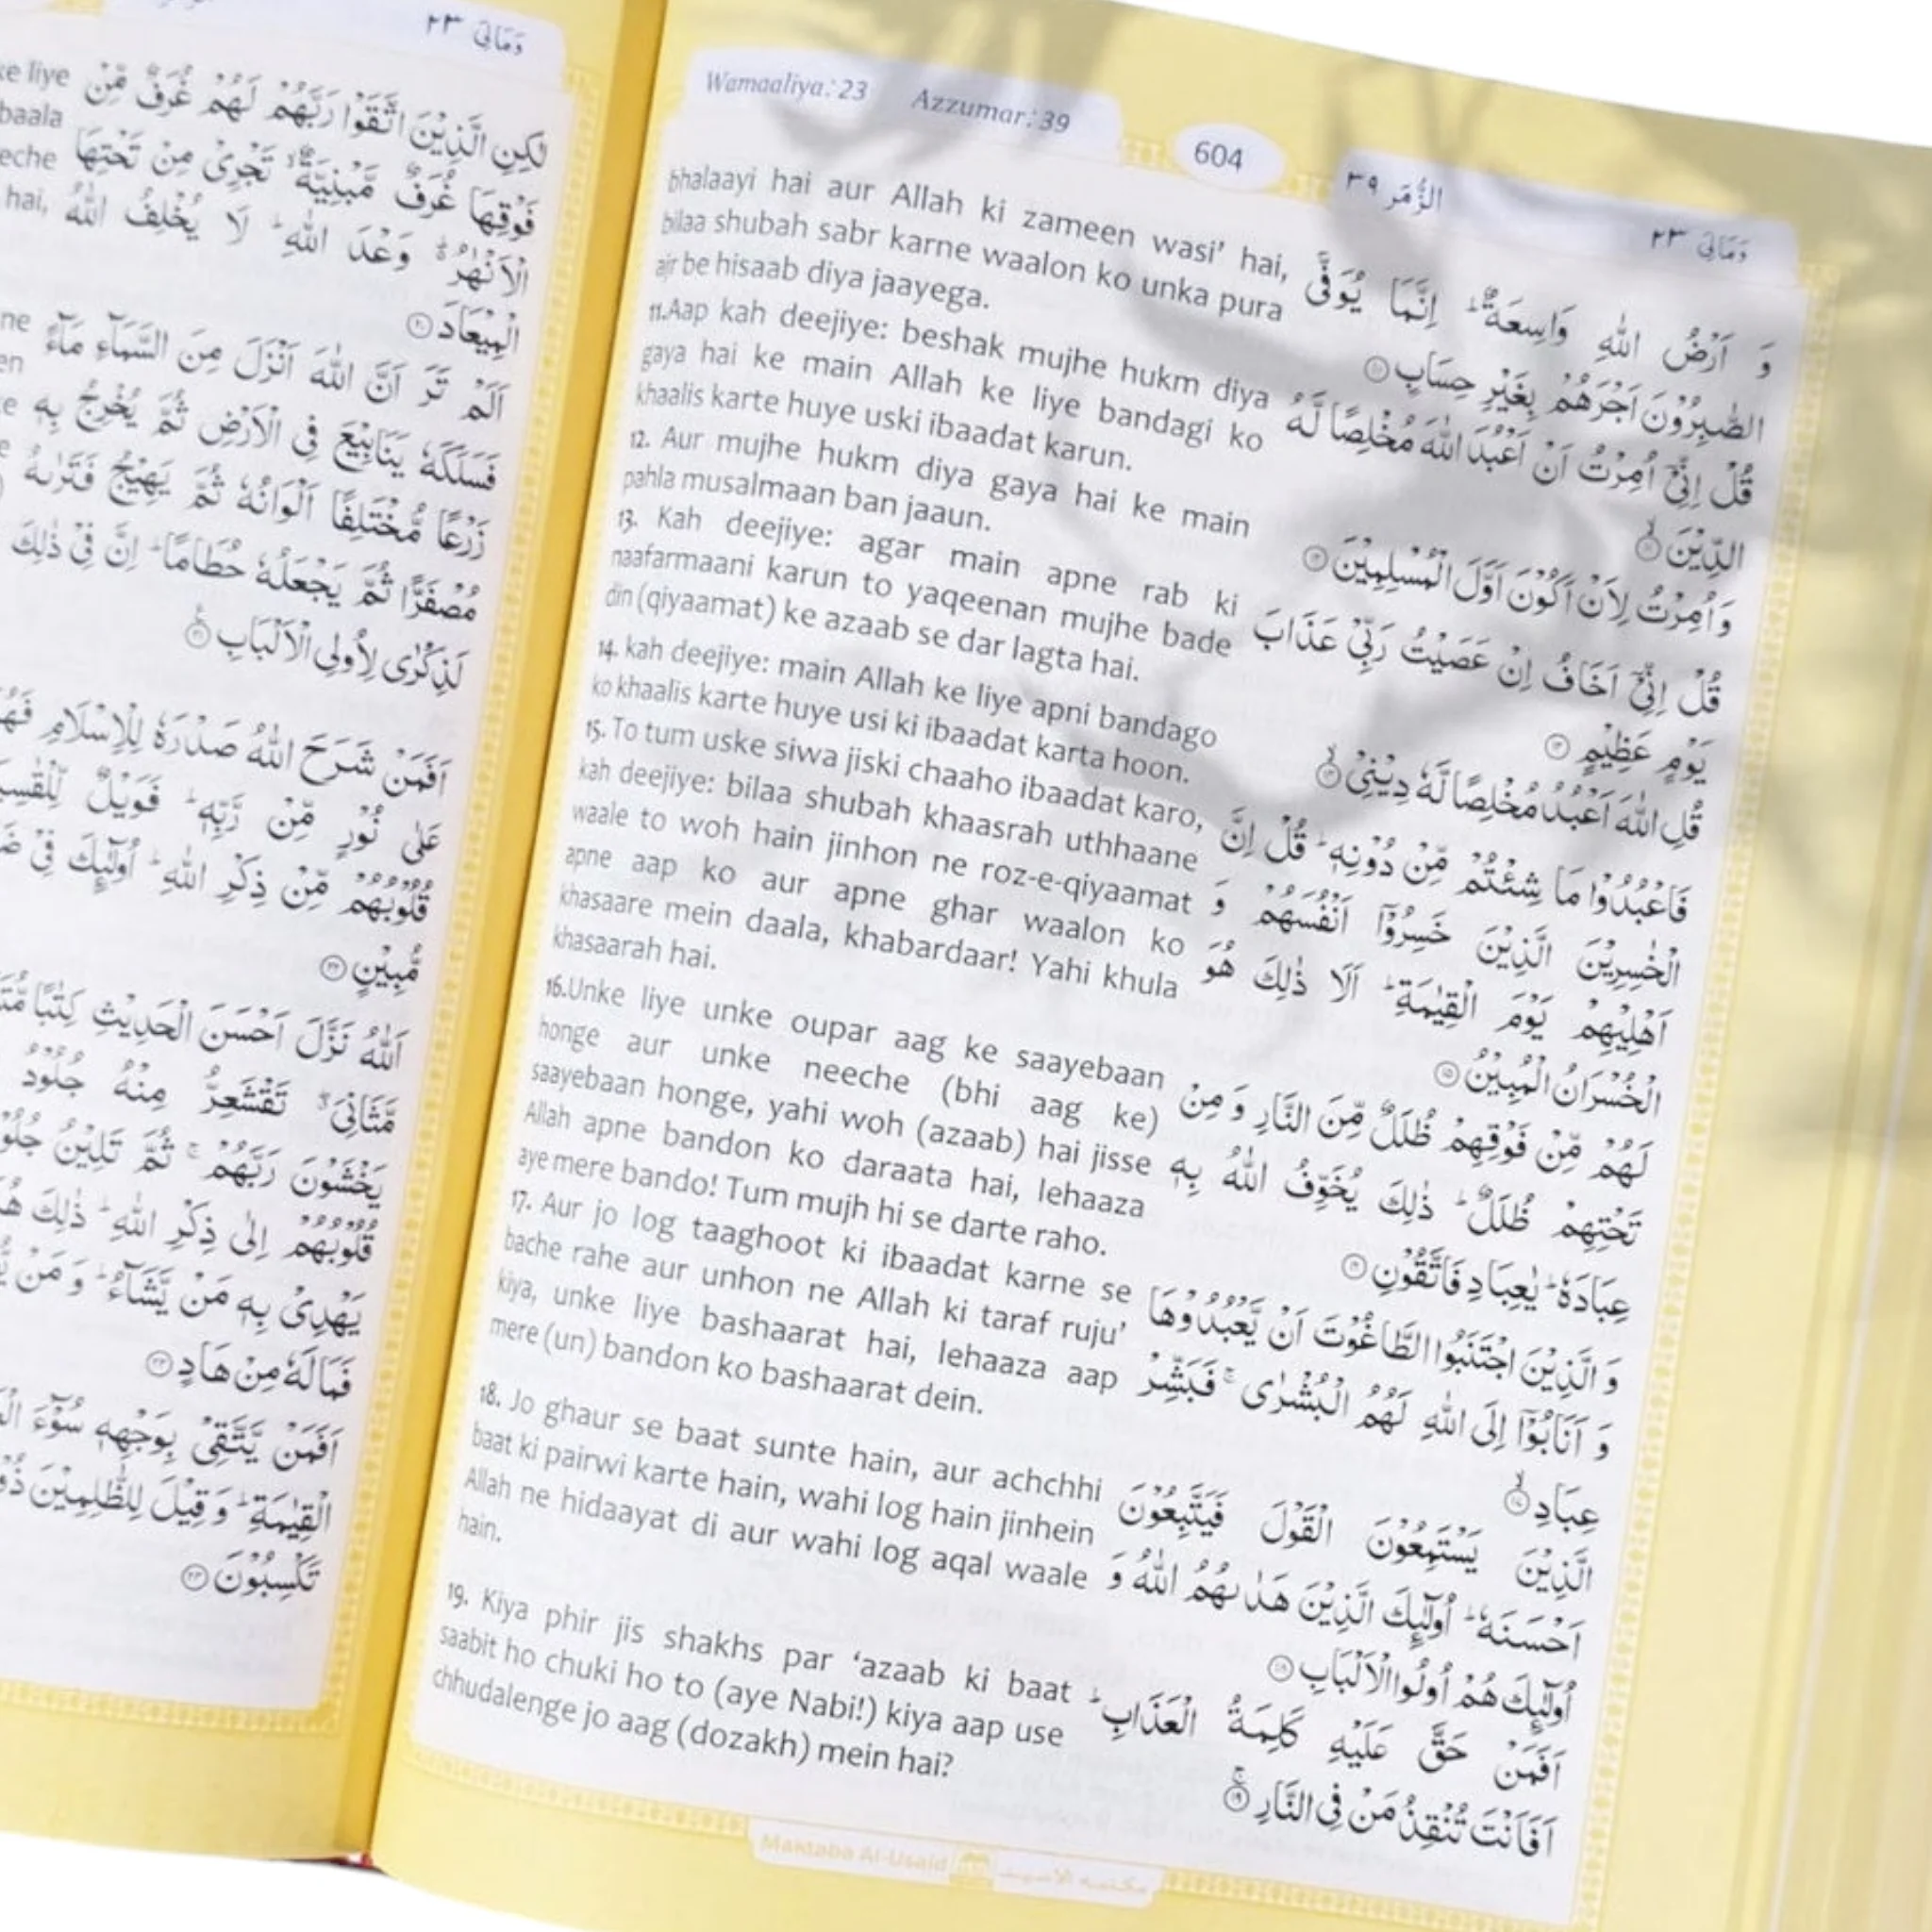 ke liye
baala
neeche
hai,
وَمَالِيَ ٢٣
لٰكِنِ الَّذِيْنَ اتَّقَوْا رَبَّهُمْ لَهُمْ غُرَفٌ مِّنْ
فَوْقِهَا غُرَفٌ مَّبْنِيَّةٌ ۙ تَجْرِيْ مِنْ تَحْتِهَا
الْاَنْهٰرُ ۗ وَعْدَ اللّٰهِ ؕ لَا يُخْلِفُ اللّٰهُ
الْمِيْعَادَ ٢٠
اَلَمْ تَرَ اَنَّ اللّٰهَ اَنْزَلَ مِنَ السَّمَآءِ مَآءً
فَسَلَكَهٗ يَنَابِيْعَ فِي الْاَرْضِ ثُمَّ يُخْرِجُ بِهٖ
زَرْعًا مُّخْتَلِفًا اَلْوَانُهٗ ثُمَّ يَهِيْجُ فَتَرٰىهُ
مُصْفَرًّا ثُمَّ يَجْعَلُهٗ حُطَامًا ؕ اِنَّ فِيْ ذٰلِكَ
لَذِكْرٰى لِاُولِي الْاَلْبَابِ ٢١
اَفَمَنْ شَرَحَ اللّٰهُ صَدْرَهٗ لِلْاِسْلَامِ
عَلٰى نُوْرٍ مِّنْ رَّبِّهٖ ؕ فَوَيْلٌ
قُلُوْبُهُمْ مِّنْ ذِكْرِ اللّٰهِ ؕ اُولٰٓئِكَ فِيْ
مُّبِيْنٍ ٢٢
اَللّٰهُ نَزَّلَ اَحْسَنَ الْحَدِيْثِ كِتٰبًا
مَّثَانِيَ ۖ تَقْشَعِرُّ مِنْهُ جُلُوْدُ
يَخْشَوْنَ رَبَّهُمْ ۚ ثُمَّ تَلِيْنُ
قُلُوْبُهُمْ اِلٰى ذِكْرِ اللّٰهِ ؕ ذٰلِكَ
يَهْدِيْ بِهٖ مَنْ يَّشَآءُ ؕ وَ مَنْ
فَمَا لَهٗ مِنْ هَادٍ ٢٣
اَفَمَنْ يَّتَّقِيْ بِوَجْهِهٖ سُوْٓءَ
الْقِيٰمَةِ ؕ وَ قِيْلَ لِلظّٰلِمِيْنَ
تَكْسِبُوْنَ ٢٤
Wamaaliya:23 Azzumar:39
604
الزُّمَر ٣٩
وَمَالِيَ ٢٣
bhalaayi hai aur Allah ki zameen wasi' hai,
bilaa shubah sabr karne waalon ko unka pura
ajr be hisaab diya jaayega.
11.Aap kah deejiye: beshak mujhe hukm diya
gaya hai ke main Allah ke liye bandagi ko
khaalis karte huye uski ibaadat karun.
12. Aur mujhe hukm diya gaya hai ke main
pahla musalmaan ban jaaun.
13. Kah deejiye: agar main apne rab ki
naafarmaani karun to yaqeenan mujhe bade
din (qiyaamat) ke azaab se dar lagta hai.
14. kah deejiye: main Allah ke liye apni bandago
ko khaalis karte huye usi ki ibaadat karta hoon.
15. To tum uske siwa jiski chaaho ibaadat karo,
kah deejiye: bilaa shubah khaasrah uthhaane
waale to woh hain jinhon ne roz-e-qiyaamat
apne aap ko aur apne ghar waalon ko
khasaare mein daala, khabardaar! Yahi khula
khasaarah hai.
16.Unke liye unke oupar aag ke saayebaan
honge aur unke neeche (bhi aag ke)
saayebaan honge, yahi woh (azaab) hai jisse
Allah apne bandon ko daraata hai, lehaaza
aye mere bando! Tum mujh hi se darte raho.
17. Aur jo log taaghoot ki ibaadat karne se
bache rahe aur unhon ne Allah ki taraf ruju'
kiya, unke liye bashaarat hai, lehaaza aap
mere (un) bandon ko bashaarat dein.
18. Jo ghaur se baat sunte hain, aur achchhi
baat ki pairwi karte hain, wahi log hain jinhein
Allah ne hidaayat di aur wahi log aqal waale
hain.
19. Kiya phir jis shakhs par 'azaab ki baat
saabit ho chuki ho to (aye Nabi!) kiya aap use
chhudalenge jo aag (dozakh) mein hai?
وَ اَرْضُ اللّٰهِ وَاسِعَةٌ ؕ اِنَّمَا يُوَفَّى
الصّٰبِرُوْنَ اَجْرَهُمْ بِغَيْرِ حِسَابٍ ١٠
قُلْ اِنِّيْٓ اُمِرْتُ اَنْ اَعْبُدَ اللّٰهَ مُخْلِصًا لَّهُ
الدِّيْنَ ۙ ١١
وَ اُمِرْتُ لِاَنْ اَكُوْنَ اَوَّلَ الْمُسْلِمِيْنَ ١٢
قُلْ اِنِّيْٓ اَخَافُ اِنْ عَصَيْتُ رَبِّيْ عَذَابَ
يَوْمٍ عَظِيْمٍ ١٣
قُلِ اللّٰهَ اَعْبُدُ مُخْلِصًا لَّهٗ دِيْنِيْ ۙ ١٤
فَاعْبُدُوْا مَا شِئْتُمْ مِّنْ دُوْنِهٖ ؕ قُلْ اِنَّ
الْخٰسِرِيْنَ الَّذِيْنَ خَسِرُوْٓا اَنْفُسَهُمْ وَ
اَهْلِيْهِمْ يَوْمَ الْقِيٰمَةِ ؕ اَلَا ذٰلِكَ هُوَ
الْخُسْرَانُ الْمُبِيْنُ ١٥
لَهُمْ مِّنْ فَوْقِهِمْ ظُلَلٌ مِّنَ النَّارِ وَ مِنْ
تَحْتِهِمْ ظُلَلٌ ؕ ذٰلِكَ يُخَوِّفُ اللّٰهُ بِهٖ
عِبَادَهٗ ؕ يٰعِبَادِ فَاتَّقُوْنِ ١٦
وَ الَّذِيْنَ اجْتَنَبُوا الطَّاغُوْتَ اَنْ يَّعْبُدُوْهَا
وَ اَنَابُوْٓا اِلَى اللّٰهِ لَهُمُ الْبُشْرٰى ۚ فَبَشِّرْ
عِبَادِ ۙ ١٧
الَّذِيْنَ يَسْتَمِعُوْنَ الْقَوْلَ فَيَتَّبِعُوْنَ
اَحْسَنَهٗ ؕ اُولٰٓئِكَ الَّذِيْنَ هَدٰىهُمُ اللّٰهُ وَ
اُولٰٓئِكَ هُمْ اُولُوا الْاَلْبَابِ ١٨
اَفَمَنْ حَقَّ عَلَيْهِ كَلِمَةُ الْعَذَابِ ؕ
اَفَاَنْتَ تُنْقِذُ مَنْ فِي النَّارِ ۚ ١٩
Maktaba Al-Usaid